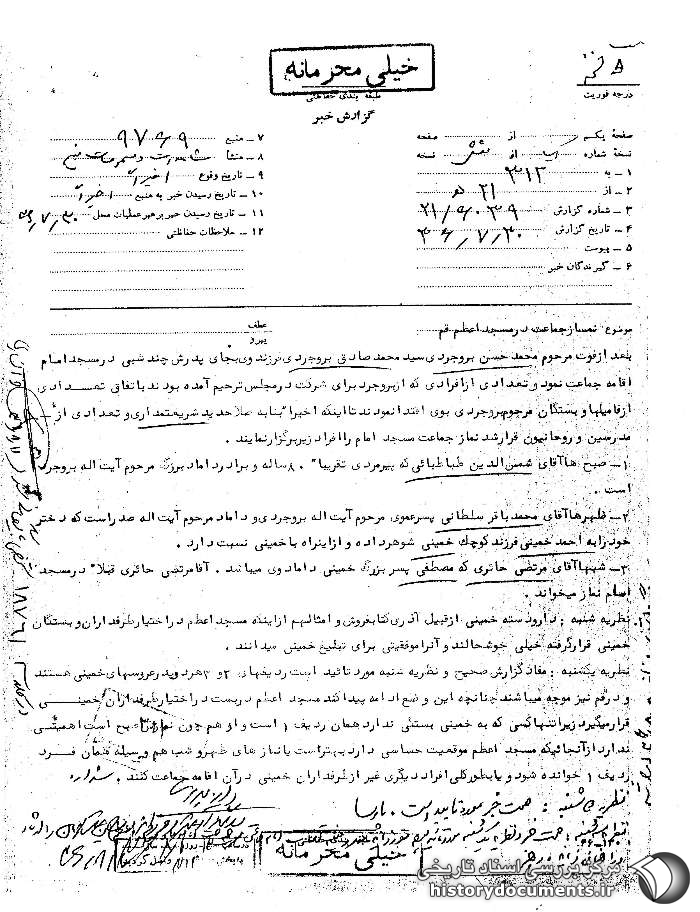 خیلی محرمانه
طبقه بندی حفاظتی
گزارش خبر
درجه فوریت
صفحهٔ یکم از صفحه
نسخهٔ شماره از نسخه
۱ - به ۳۱۲
۲ - از ۲۱ ه‍
۳ - شماره گزارش ۲۱/۹۰۳۹
۴ - تاریخ گزارش ۳۶/۷/۳۰
۵ - پیوست
۶ - گیرندگان خبر
۷ - منبع ۹۷۶۹
۸ - منشا
۹ - تاریخ وقوع اخیراً
۱۰ - تاریخ رسیدن خبر به منبع اخیراً
۱۱ - تاریخ رسیدن خبر برهبر عملیات محل ۳۶/۷/۳۰
۱۲ - ملاحظات حفاظتی
موضوع نماز جماعت در مسجد اعظم قم
عطف
پیرو
بعد از فوت مرحوم محمد حسن بروجردی سید محمد صادق بروجردی فرزند وی بجای پدرش چند شبی در مسجد امام
اقامه جماعت نمود و تعدادی از افرادی که از بروجرد برای شرکت در مجلس ترحیم آمده بودند باتفاق تعدادی
از فامیلها و بستگان مرحوم بروجردی بوی اقتدا نمودند تا اینکه اخیرا بنا به صلاحدید شریعتمداری و تعدادی از
مدرسین و روحانیون قرار شد نماز جماعت مسجد امام را افراد زیر برگزار نمایند .
۱ - صبح ها آقای شمس الدین طباطبائی که پیرمردی تقریبا" ۸۰ ساله و برادر داماد بزرگ مرحوم آیت اله بروجرد
است .
۲ - ظهرها آقای محمد باقر سلطانی پسرعموی مرحوم آیت اله بروجردی و داماد مرحوم آیت اله صدر است که دختر
خود را به احمد خمینی فرزند کوچک خمینی شوهر داده و از اینراه با خمینی نسبت دارد .
۳ - شبها آقای مرتضی حائری که مصطفی پسر بزرگ خمینی داماد وی میباشد . آقا مرتضی حائری قبلا" در مسجد
امام نماز میخواند .
نظریه شنبه : دارودسته خمینی از قبیل آذری کتابفروش و امثالهم از اینکه مسجد اعظم در اختیار طرفداران و بستگان
خمینی قرار گرفته خیلی خوشحالند و آنرا موفقیتی برای تبلیغ خمینی میدانند .
نظریه یکشنبه : مفاد گزارش صحیح و نظریه شنبه مورد تائید است ردیفهای ۲ و ۳ هر دو پدر عروسهای خمینی هستند
و در قم نیز موجه میباشند چنانچه این وضع ادامه پیدا کند مسجد اعظم دربست در اختیار طرفداران خمینی
قرار میگیرد زیرا تنها کسی که به خمینی بستگی ندارد همان ردیف ۱ است و او هم چون نمازش صبح است اهمیتی
ندارد از آنجائیکه مسجد اعظم موقعیت حساسی دارد بهتر است یا نماز های ظهر و شب هم وسیله همان فرد
ردیف ۱ خوانده شود و یا بطور کلی افراد دیگری غیر از طرفداران خمینی در آن اقامه جماعت کنند .
نظریه سه شنبه : صحت خبر مورد تایید است . پارسا
خیلی محرمانه
مرکز بررسی اسناد تاریخی
historydocuments.ir